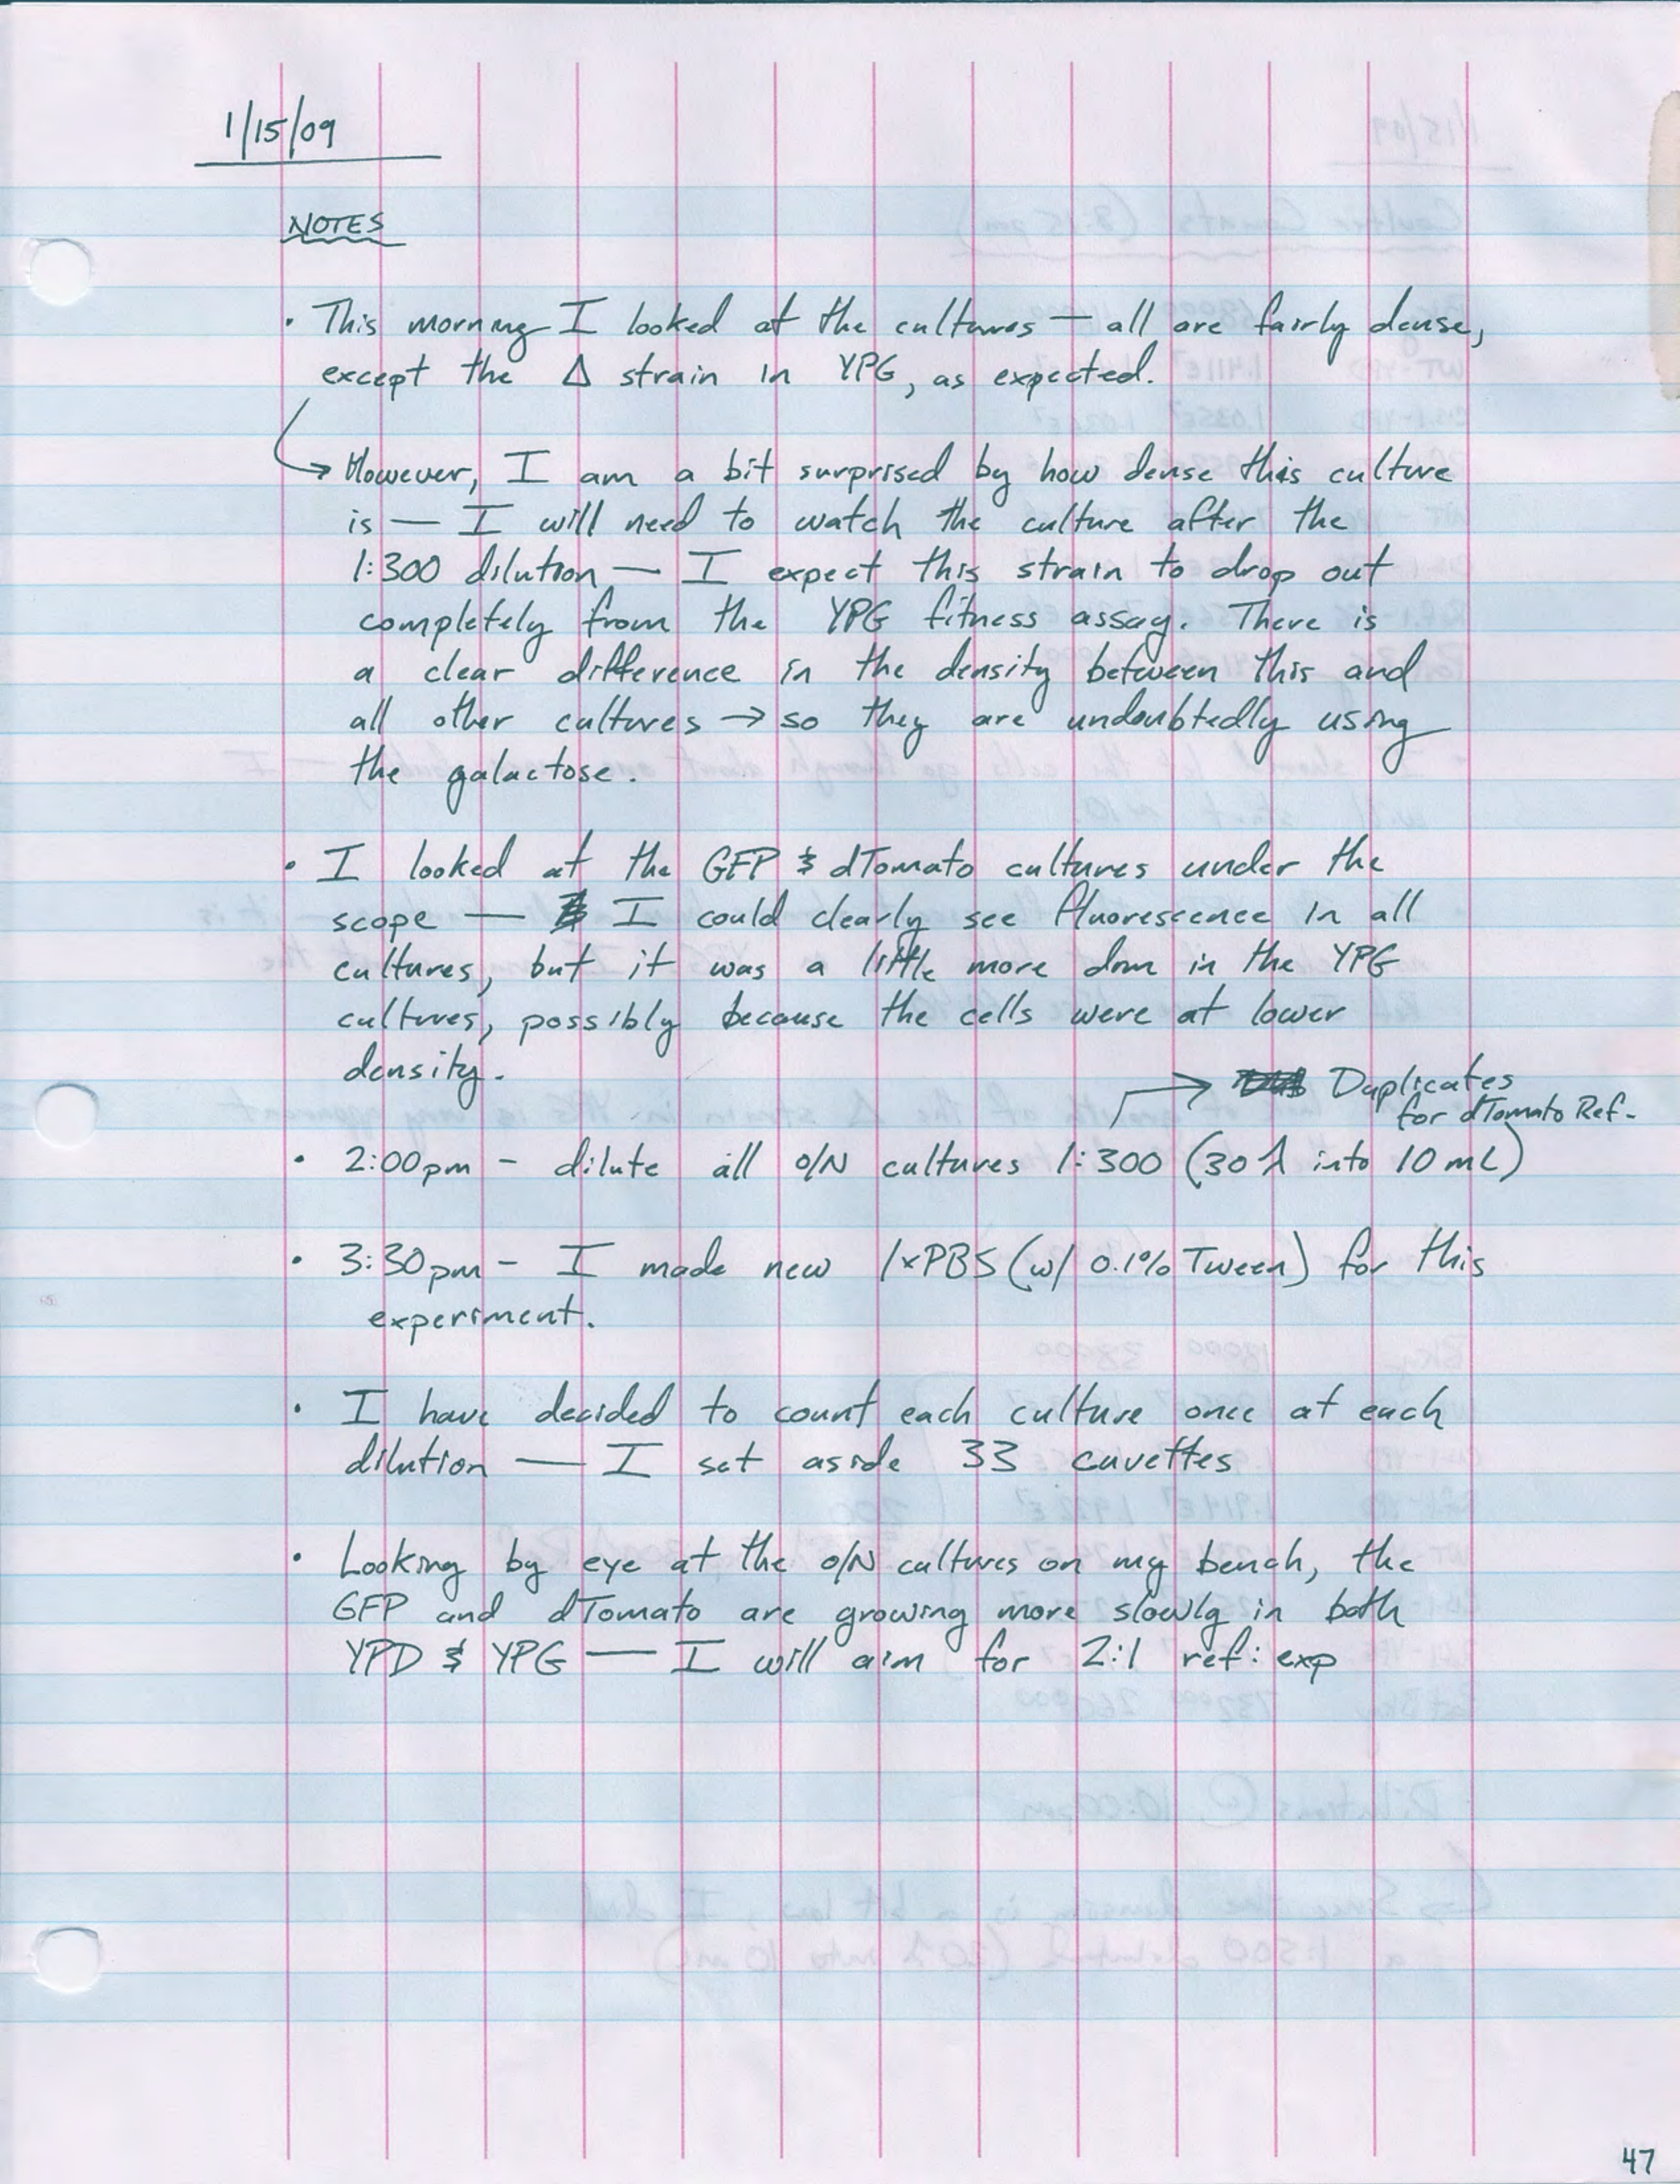 1/15/09
NOTES
· This morning I looked at the cultures — all are fairly dense,
except the Δ strain in YPG, as expected.
→ However, I am a bit surprised by how dense this culture
is — I will need to watch the culture after the
1:300 dilution — I expect this strain to drop out
completely from the YPG fitness assay. There is
a clear difference in the density between this and
all other cultures → so they are undoubtedly using
the galactose.
· I looked at the GFP & dTomato cultures under the
scope — I could clearly see fluorescence in all
cultures, but it was a little more dim in the YPG
cultures, possibly because the cells were at lower
density.
→ Duplicates
for dTomato Ref.
· 2:00pm - dilute all O/N cultures 1:300 (30 λ into 10 mL)
· 3:30pm - I made new 1xPBS (w/ 0.1% Tween) for this
experiment.
· I have decided to count each culture once at each
dilution — I set aside 33 cuvettes
· Looking by eye at the O/N cultures on my bench, the
GFP and dTomato are growing more slowly in both
YPD & YPG — I will aim for 2:1 ref:exp
47